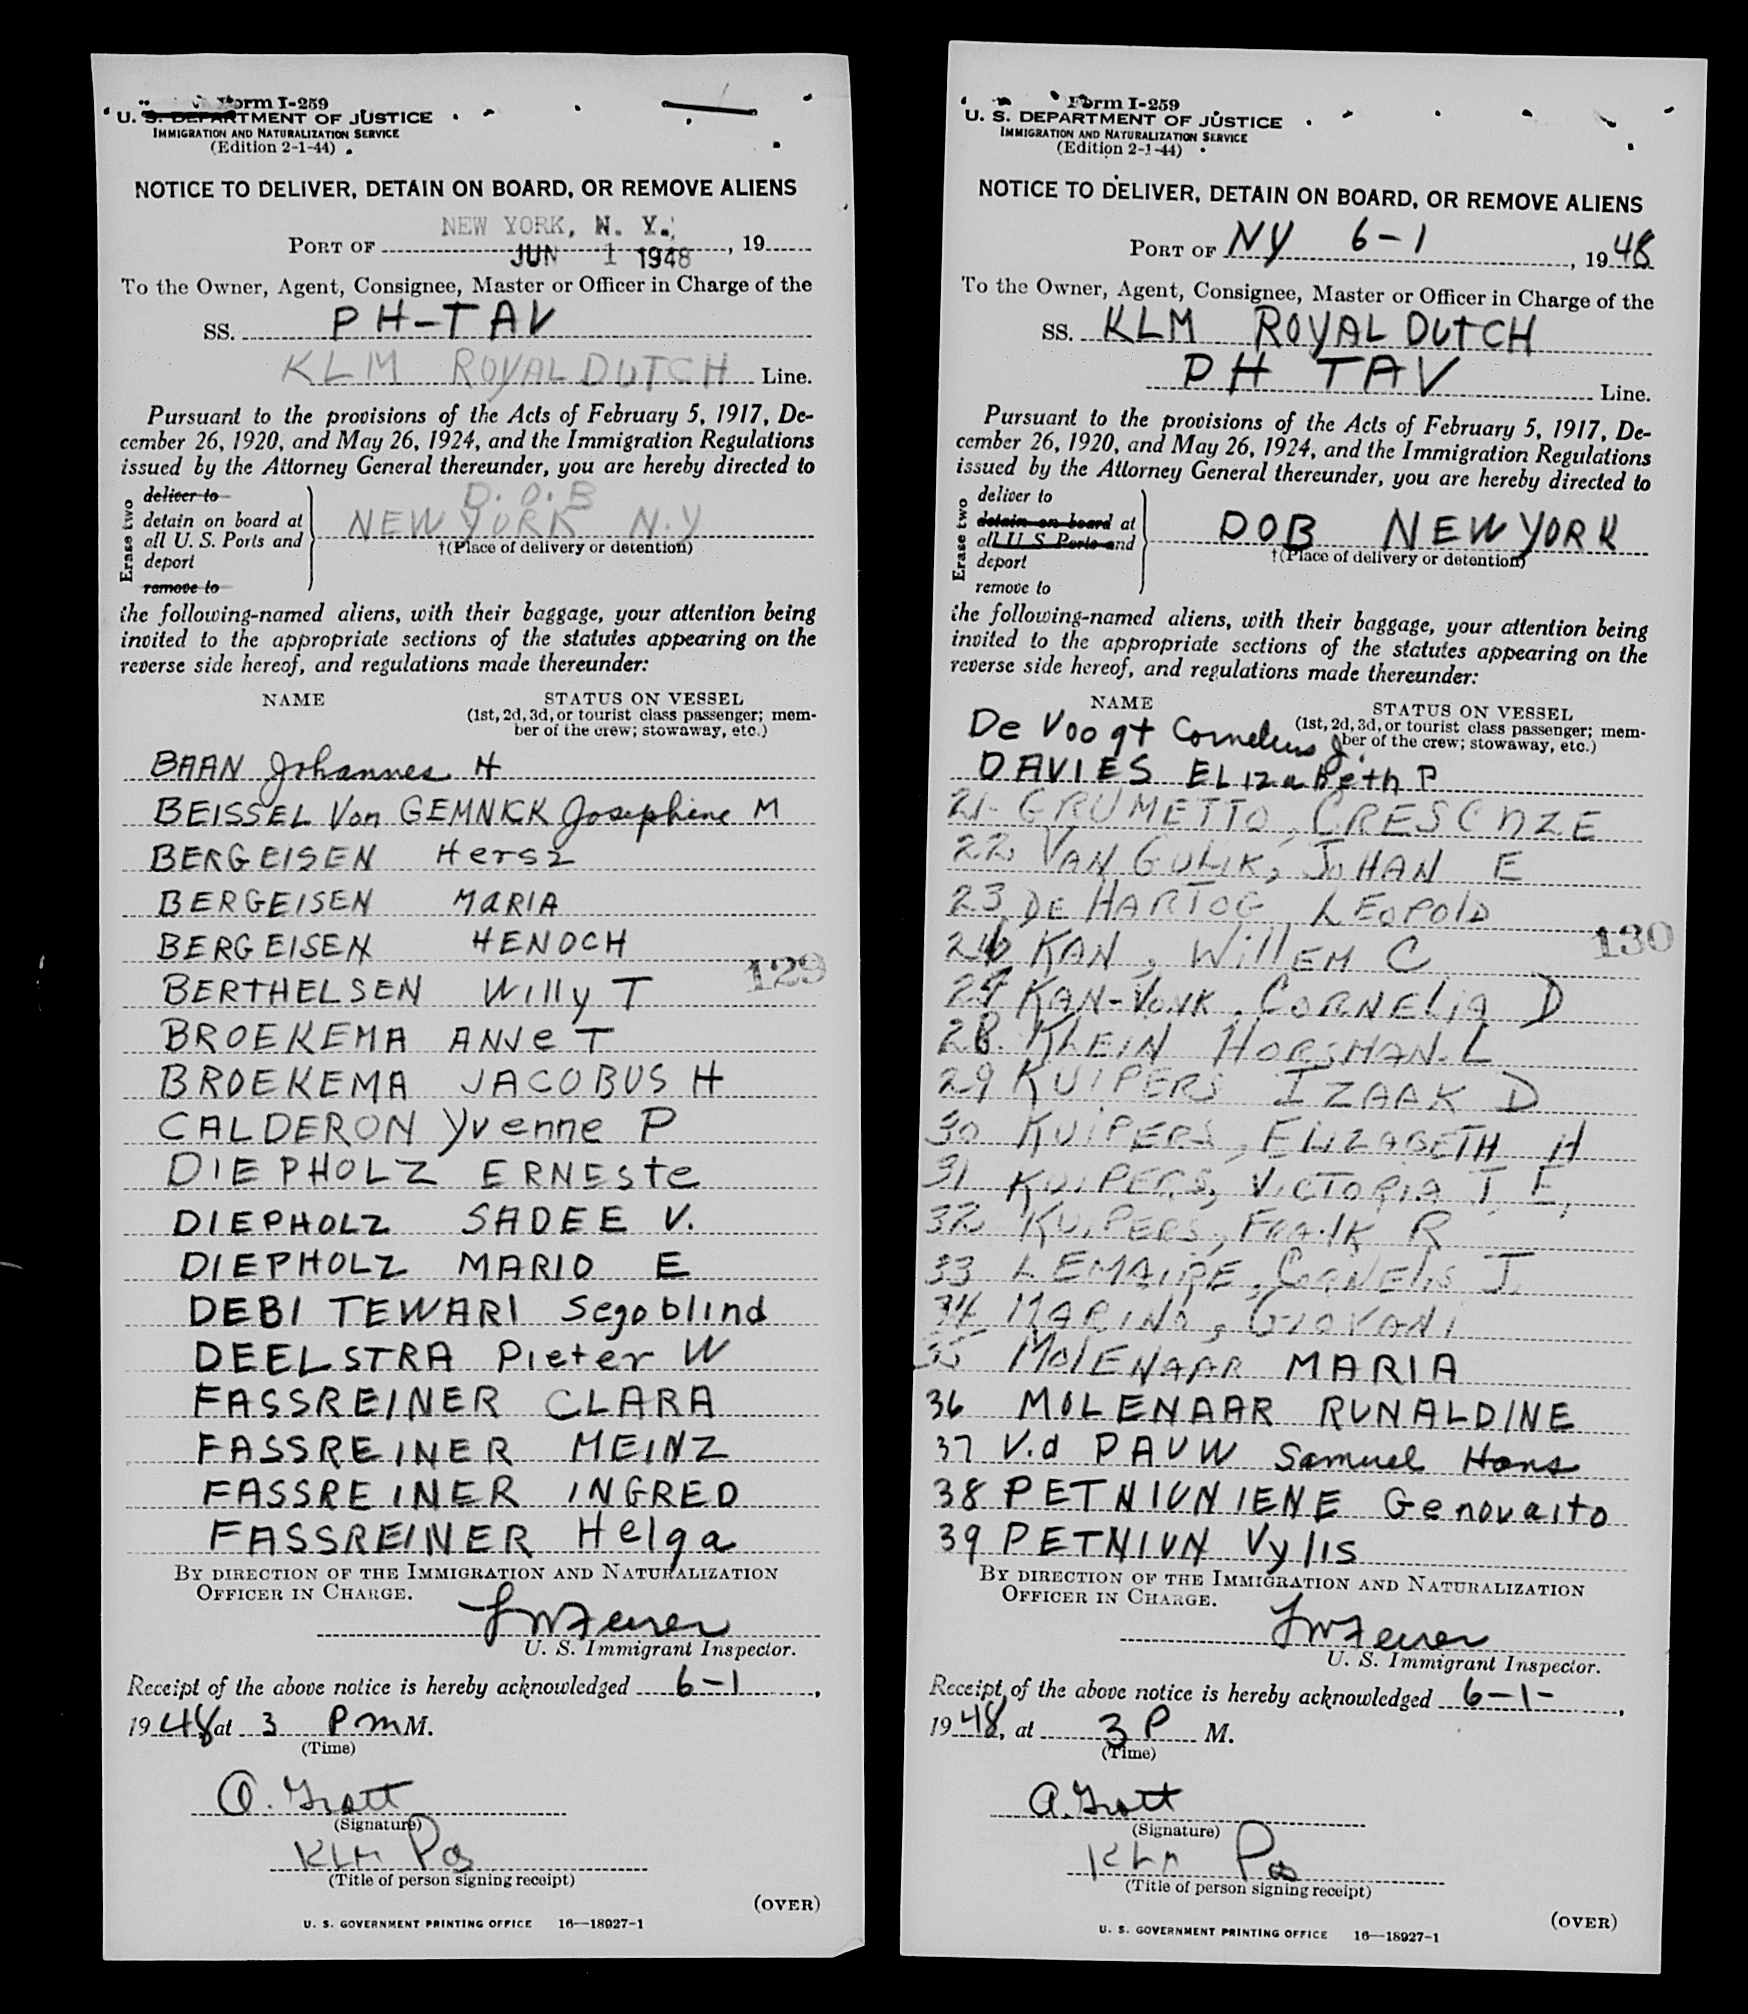 Form I-259
U. S. DEPARTMENT OF JUSTICE
IMMIGRATION AND NATURALIZATION SERVICE
(Edition 2-1-44)
NOTICE TO DELIVER, DETAIN ON BOARD, OR REMOVE ALIENS
NEW YORK, N. Y.
PORT OF JUN 1 1948, 19
To the Owner, Agent, Consignee, Master or Officer in Charge of the
SS. PH-TAV
KLM ROYAL DUTCH Line.
Pursuant to the provisions of the Acts of February 5, 1917, De-
cember 26, 1920, and May 26, 1924, and the Immigration Regulations
issued by the Attorney General thereunder, you are hereby directed to
Erase two
deliver to
detain on board at
all U. S. Ports and
deport
remove to
D.O.B
NEW YORK N.Y
†(Place of delivery or detention)
the following-named aliens, with their baggage, your attention being
invited to the appropriate sections of the statutes appearing on the
reverse side hereof, and regulations made thereunder:
NAME STATUS ON VESSEL
(1st, 2d, 3d, or tourist class passenger; mem-
ber of the crew; stowaway, etc.)
BAAN Johannes H
BEISSEL Von GEMNICK Josephine M
BERGEISEN Hersz
BERGEISEN MARIA
BERGEISEN HENOCH
129
BERTHELSEN Willy T
BROEKEMA ANJe T
BROEKEMA JACOBUS H
CALDERON Yvenne P
DIEPHOLZ ERNESte
DIEPHOLZ SADEE V.
DIEPHOLZ MARIO E
DEBI TEWARI Segoblind
DEELSTRA Pieter W
FASSREINER CLARA
FASSREINER MEINZ
FASSREINER INGRED
FASSREINER Helga
BY DIRECTION OF THE IMMIGRATION AND NATURALIZATION
OFFICER IN CHARGE.
U. S. Immigrant Inspector.
Receipt of the above notice is hereby acknowledged 6-1,
1948 at 3 Pm M.
(Time)
A. Trott
(Signature)
KLM
(Title of person signing receipt)
(OVER)
U. S. GOVERNMENT PRINTING OFFICE 16—18927-1
Form I-259
U. S. DEPARTMENT OF JUSTICE
IMMIGRATION AND NATURALIZATION SERVICE
(Edition 2-1-44)
NOTICE TO DELIVER, DETAIN ON BOARD, OR REMOVE ALIENS
PORT OF NY 6-1, 1948
To the Owner, Agent, Consignee, Master or Officer in Charge of the
SS. KLM ROYAL DUTCH
PH TAV Line.
Pursuant to the provisions of the Acts of February 5, 1917, De-
cember 26, 1920, and May 26, 1924, and the Immigration Regulations
issued by the Attorney General thereunder, you are hereby directed to
Erase two
deliver to
detain on board at
all U S Ports and
deport
remove to
DOB NEW YORK
†(Place of delivery or detention)
the following-named aliens, with their baggage, your attention being
invited to the appropriate sections of the statutes appearing on the
reverse side hereof, and regulations made thereunder:
NAME STATUS ON VESSEL
(1st, 2d, 3d, or tourist class passenger; mem-
ber of the crew; stowaway, etc.)
De Voogt Cornelius J.
DAVIES ELIzabeth P
21- GRUMETTO, CRESCNZE
22 VAN GULIK, JOHAN E
23 DE HARTOG LEOPOLD
130
26 KAN, WillEM C
27 KAN-VONK, CORNELIA D
28. KLEIN HORSMAN. L
29 KUIPERS IZAAK D
30 KUIPERS, ELIZABETH H
31 KUIPERS, VICTORIA T. E,
32 KUIPERS, FRANK R
33 LEMAIRE, CORNELIS J.
34 MARINO, GIOVANI
35 MOLENAAR MARIA
36 MOLENAAR RUNALDINE
37 V.d PAUW Samuel Hans
38 PETNIUNIENE Genovaito
39 PETNIUN Vylis
BY DIRECTION OF THE IMMIGRATION AND NATURALIZATION
OFFICER IN CHARGE.
U. S. Immigrant Inspector.
Receipt of the above notice is hereby acknowledged 6-1-,
1948, at 3 P M.
(Time)
A. Trott
(Signature)
KLM
(Title of person signing receipt)
(OVER)
U. S. GOVERNMENT PRINTING OFFICE 16—18927-1